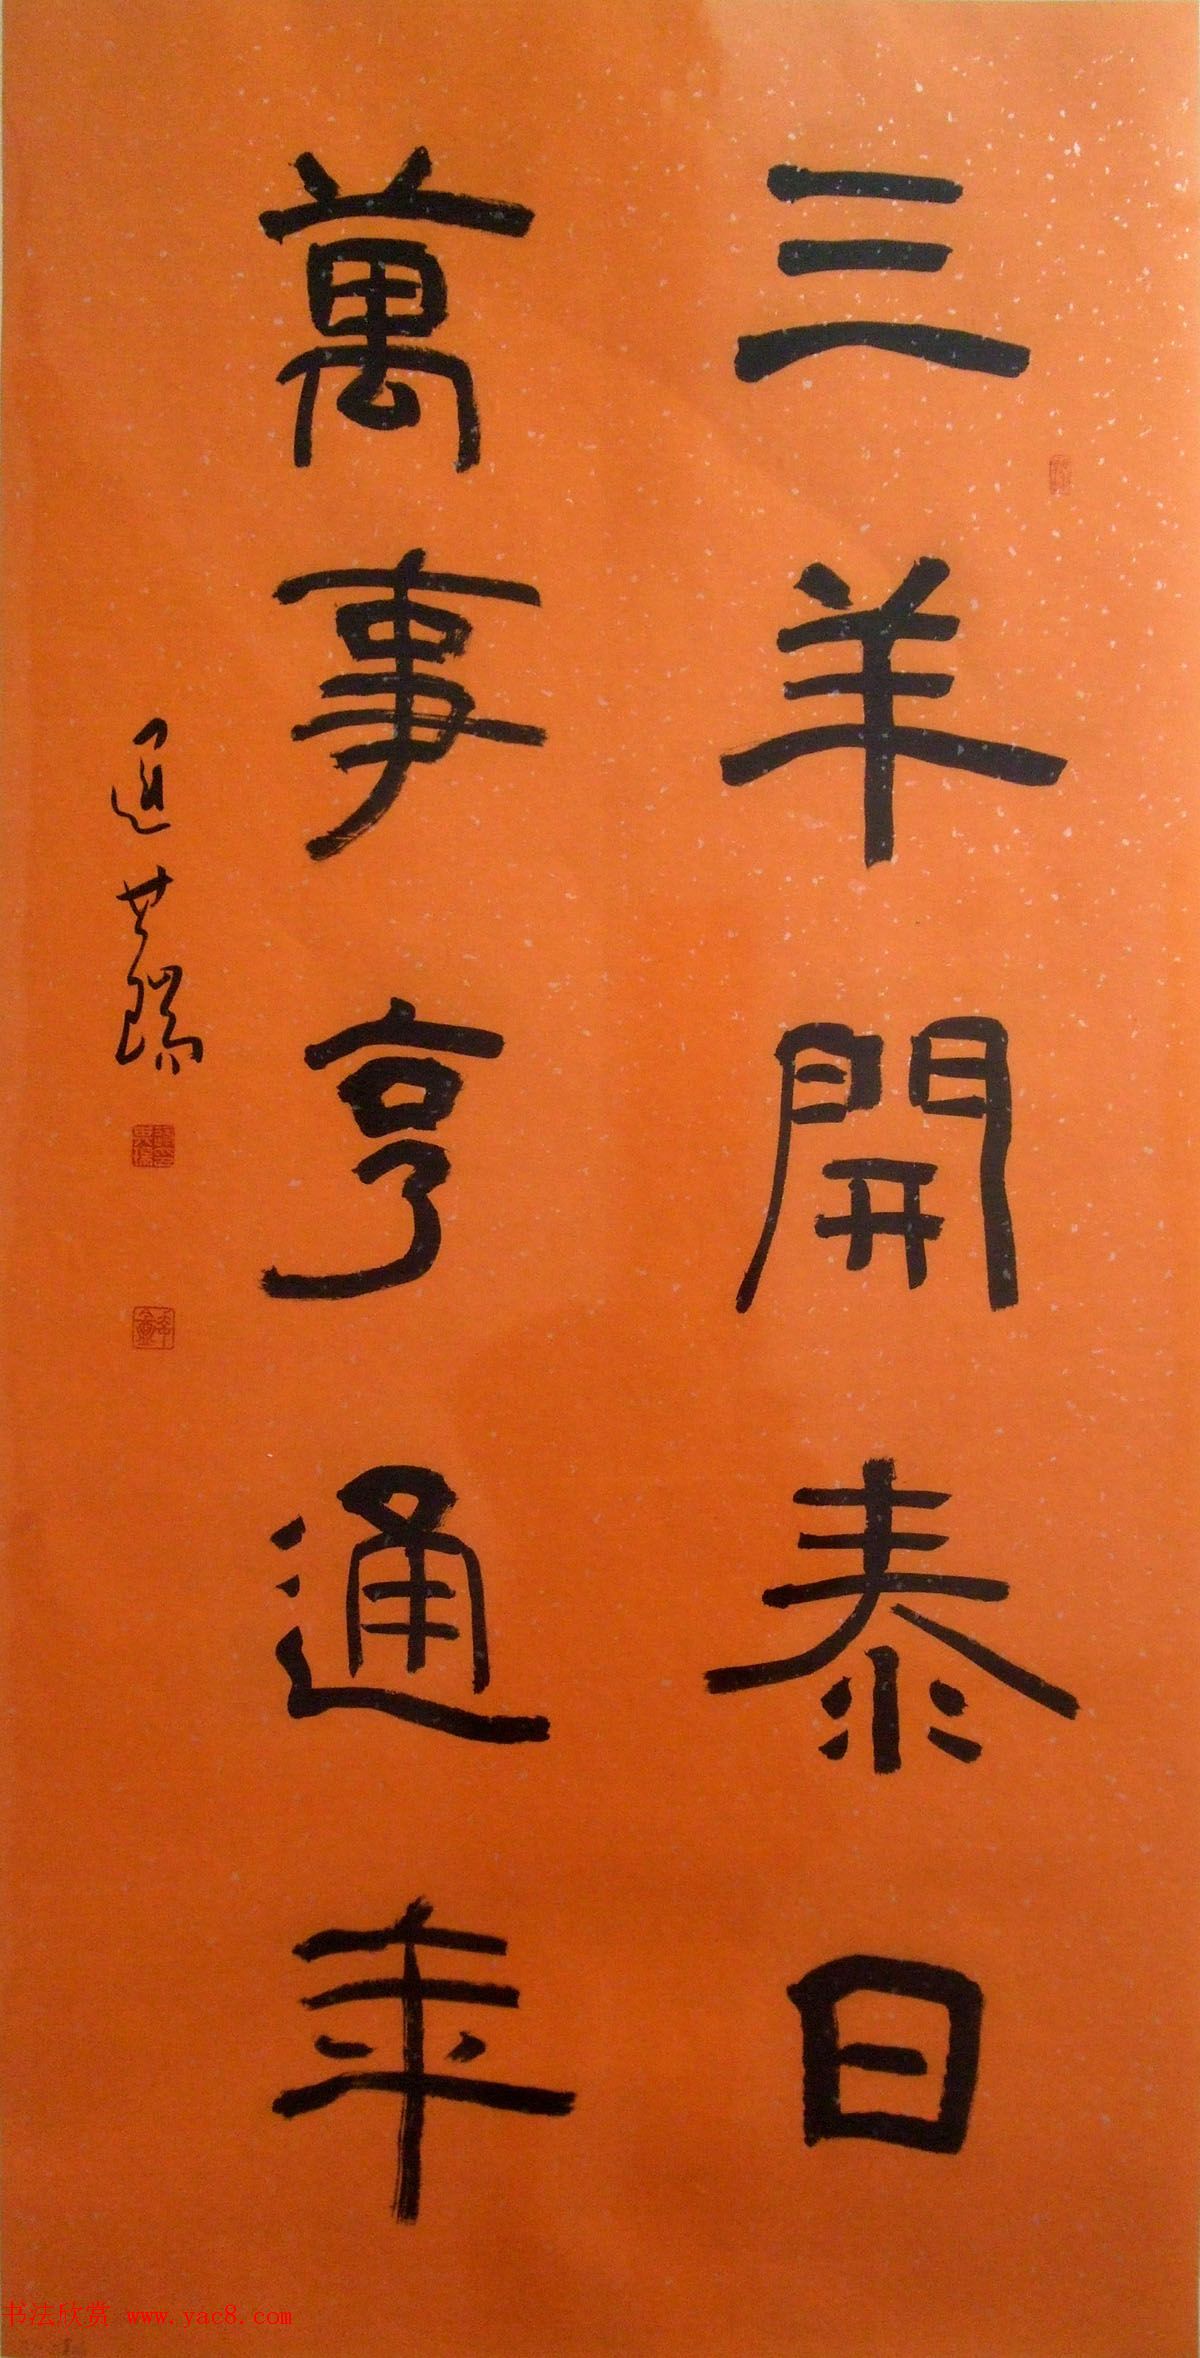 三羊開泰日
萬事亨通年
书法欣赏 www.yac8.com